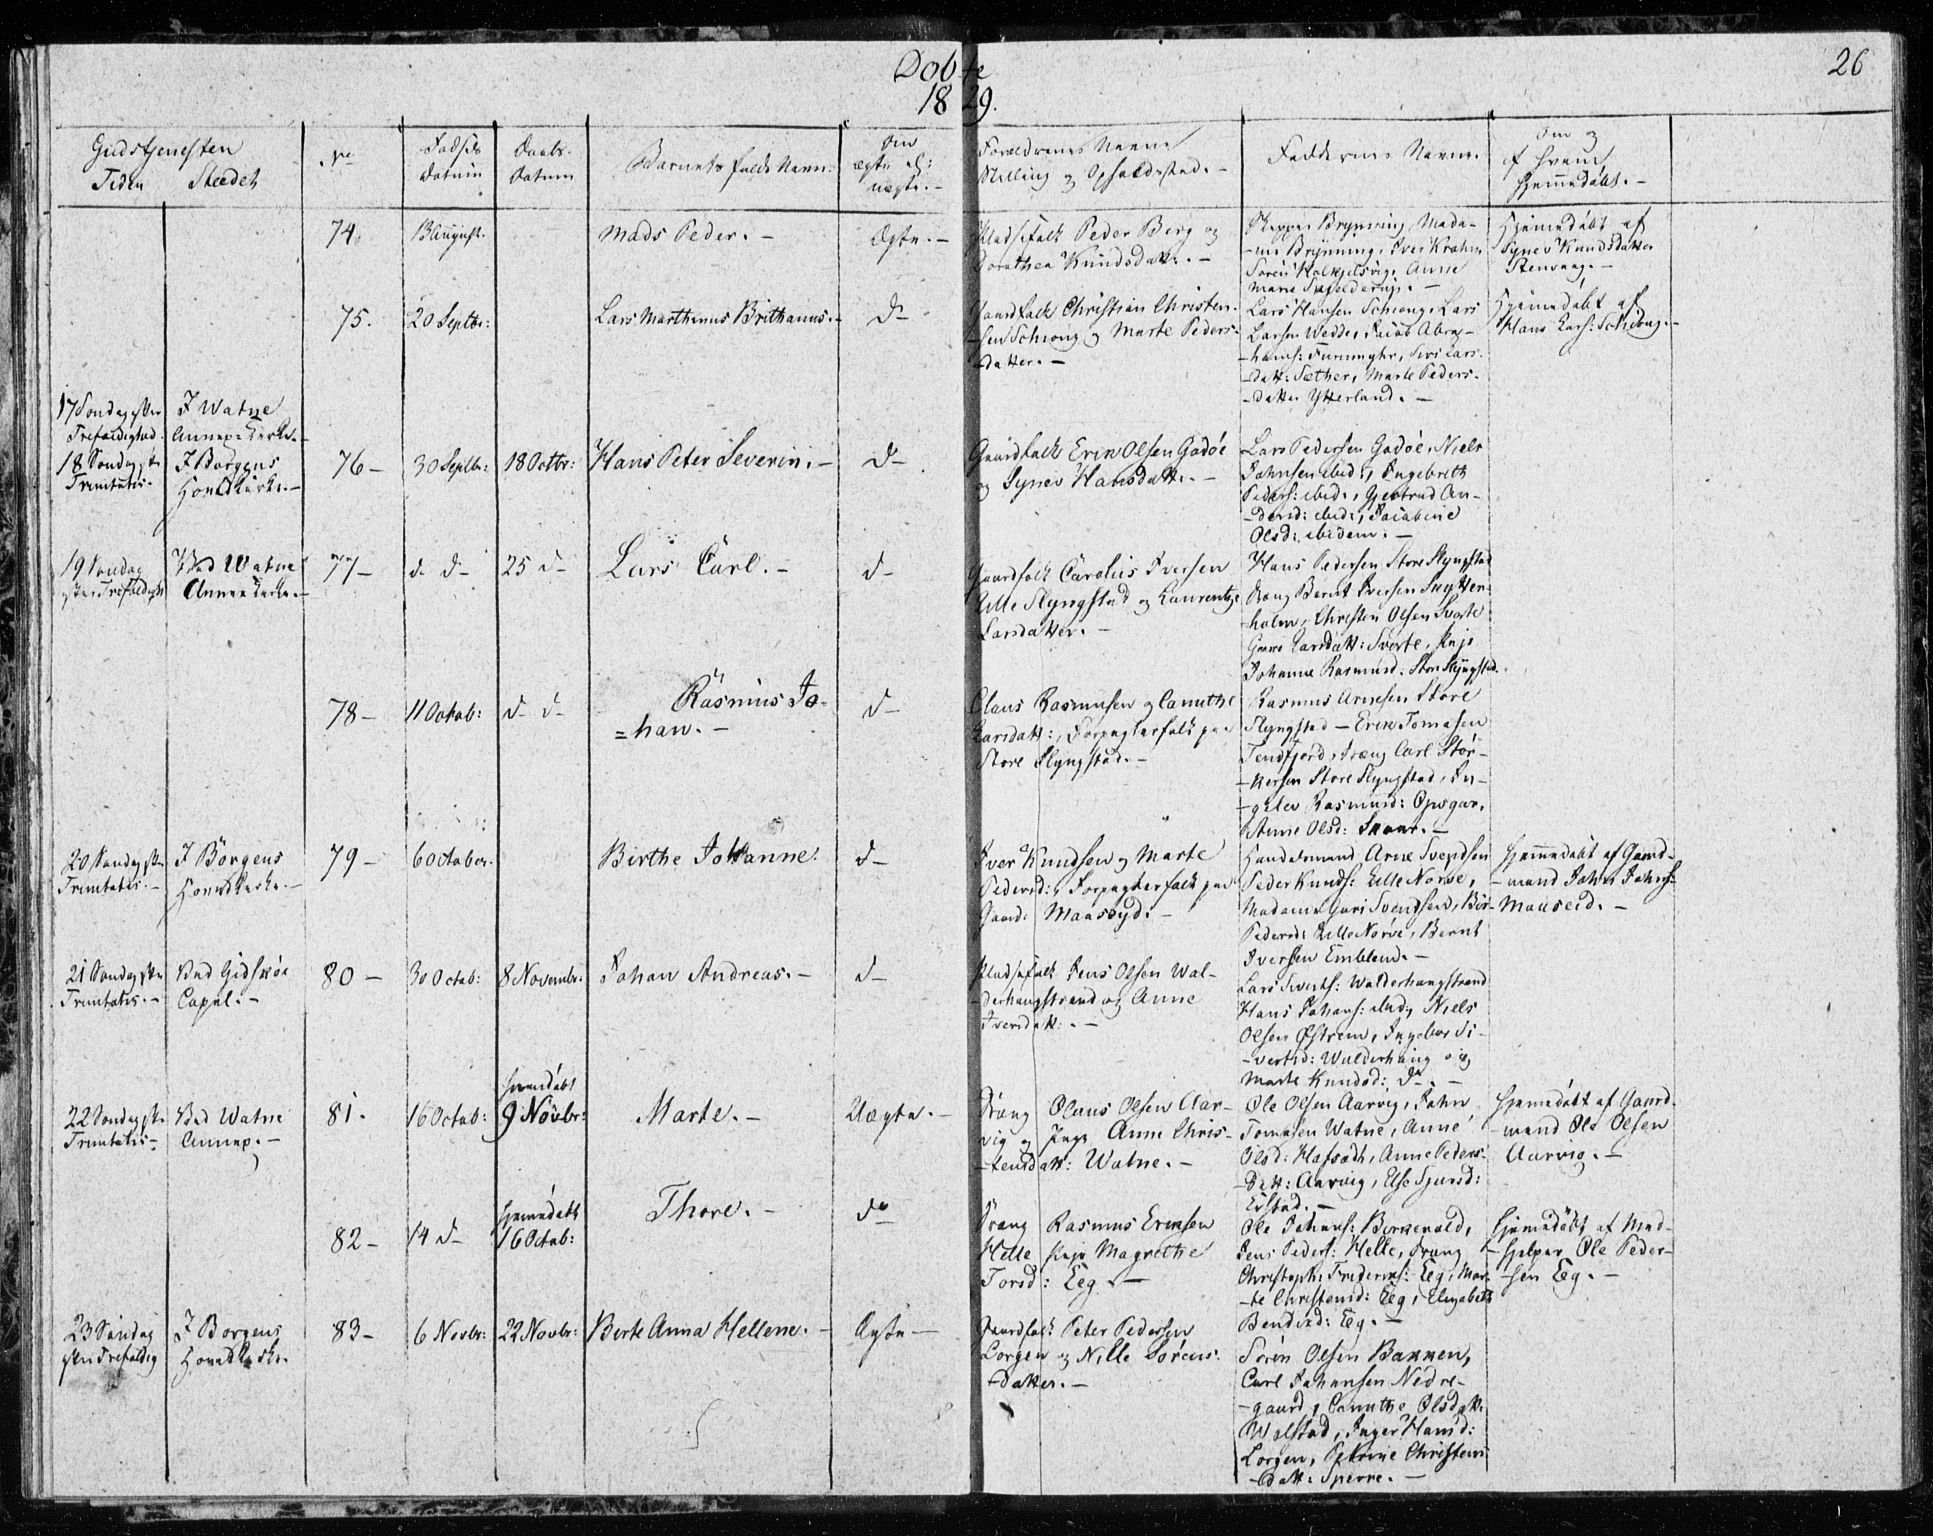 Døbte
1829.
26
Gudstjenesten
Tiden Stedet
No
Fødsels
Datum
Daabs-
Datum
Barnets fulde Navn.
Om
ægte el:
uægte. -
Forældrenes Navne
Stilling og Opholdssted. -
Faddernes Navne.
Om og
af hvem
hjemmedøbt. -
74.
13 August.
Mads Peder. -
Ægte. -
Pladsefolk Peder Berg og
Dorothea Knudsdatt: -
Skipper Brynning, Mada-
-me Brynning, Iver Krohn,
Søren Anne
Marie
Hjemmedøbt af
Synev Knudsdatter
Stenvaag. -
75.
20 Septbr:
Lars Marthinus Brithanus. -
d-
Gaardfolk Christian Christen-
-sen Schiong og Marte Peders-
-datter. -
Lars Hansen Schiong, Lars
Larsen Wedde, Jacob Abra-
-hams: Siri Lars-
-datt: Sæther, Marte Peders-
-datter Ytterland. -
Hjemmedøbt af
Hans Lars: Schiong. -
17 Søndag efter
Trefoldighed.
I Watne
Annexe Kirke. -
18 Søndag efter
Trinitatis. -
I Borgens
Hovedkirke. -
76 -
30 Septbr:
18 Octbr:
Hans Peter Severin. -
d-
Gaardfolk Erik Olsen Godøe
og Synev Hansdatt: -
Lars Pedersen Godøe, Niels
Johnsen ibid:, Ingebreth
Peders: ibid:, Gjertrud An-
-dersd: ibid:, Jacobine
Olsd: ibidem. -
19 Søndag
efter Trefoldigh
Ved Watne
Annex Kirke. -
77 -
d- d-
25 d-
Lars Carl. -
d-
Gaardfolk Carolus Iversen
Lille Slyngstad og Laurentze
Larsdatter. -
Hans Pedersen Store Slyngstad
Dreng Bernt Iversen Skytten-
-holm, Christen Olsen Svorte
Larsdatt: Svorte, Pige
Johanne Rasmusd: Store Slyngstad.
78 -
11 Octob:
d- d-
Rasmus Jo-
=han. -
d-
Claus Rasmusen og Canuthe
Larsdatt:, Forpagterfolk paa
Store Slyngstad. -
Rasmus Arnesen Store
Slyngstad - Erik Tomasen
Tendfjord, Dreng Carl Stør-
-kersen Store Slyngstad, In-
-gelev Rasmusd:
Anne Olsd: -
20 Søndag efter
Trinitatis. -
I Borgens
Hovedkirke. -
79 -
6 October.
Birthe Johanne.
d-
Iver Knudsen og Marte
Pedersd:, Forpagterfolk paa
Gaard: -
Handelsmand Arne Svendsen
Peder Knuds: Lille Norve,
Madame Guri Svendsen, Bir-
Pedersd: Lille Norve, Bernt
Iversen Emblem. -
Hjemmedøbt af Gaard-
-mand John Johns:
Mauseid. -
21 Søndag efter
Trinitatis. -
Ved Gidskøe
Capel. -
80 -
30 Octob:
8 Novembr.
Johan Andreas. -
d-
Pladsefolk Jens Olsen Wal-
-derhaugstrand og Anne
Iversdatt: -
Lars Siverts: Walderhaugstrand
Hans Johans: ibid:, Niels
Olsen Østrem, Ingebor Si-
-vertsd: Walderhaug og
Marte Knudsd: do. -
22 Søndag efter
Trinitatis -
Ved Watne
Annex. -
81.
16 Octob:
hjemdøbt
9 Novbr:
Marte. -
Uægte. -
Dreng Olaus Olsen Aar-
vig og Pige Anne Chris-
-tensdatt: Watne. -
Ole Olsen Aarvig, John
Tomasen Watne, Anne
Olsd: Anne Peders-
-datt: Aarvig, Else Sjursd:
Eistad. -
Hjemmedøbt af Gaard-
-mand Ole Olsen
Aarvig. -
82 -
14 d-
hjemmedøbt
16 Octob:
Thore. -
do
Dreng Rasmus Eriksen
Helle Pige Magrethe
Torsd: Eeg. -
Ole Johans:
Jens Peders: Helle, Dreng
Christoph: Frideriks: Eeg, Mar-
-te Christensd: Eeg, Elizabeth
Bendixd: Eeg. -
Hjemmedøbt af Med-
-hjelper Ole Peder-
-sen Eeg. -
23 Søndag
efter Trefoldig
I Borgens
Hovedkirke.
83 -
6 Novbr:
22 Novbr:
Berte Anna Hellene. -
Ægte -
Gaardfolk Peter Pedersen
Lorgen og Nille Sørens-
-datter. -
Søren Olsen Bakken,
Carl Johansen Nedre-
-gaard, Canuthe Olsdatt:
Walstad, Inger Hansd:
Lorgen, Petrine Christens-
-datt: Sperre. -